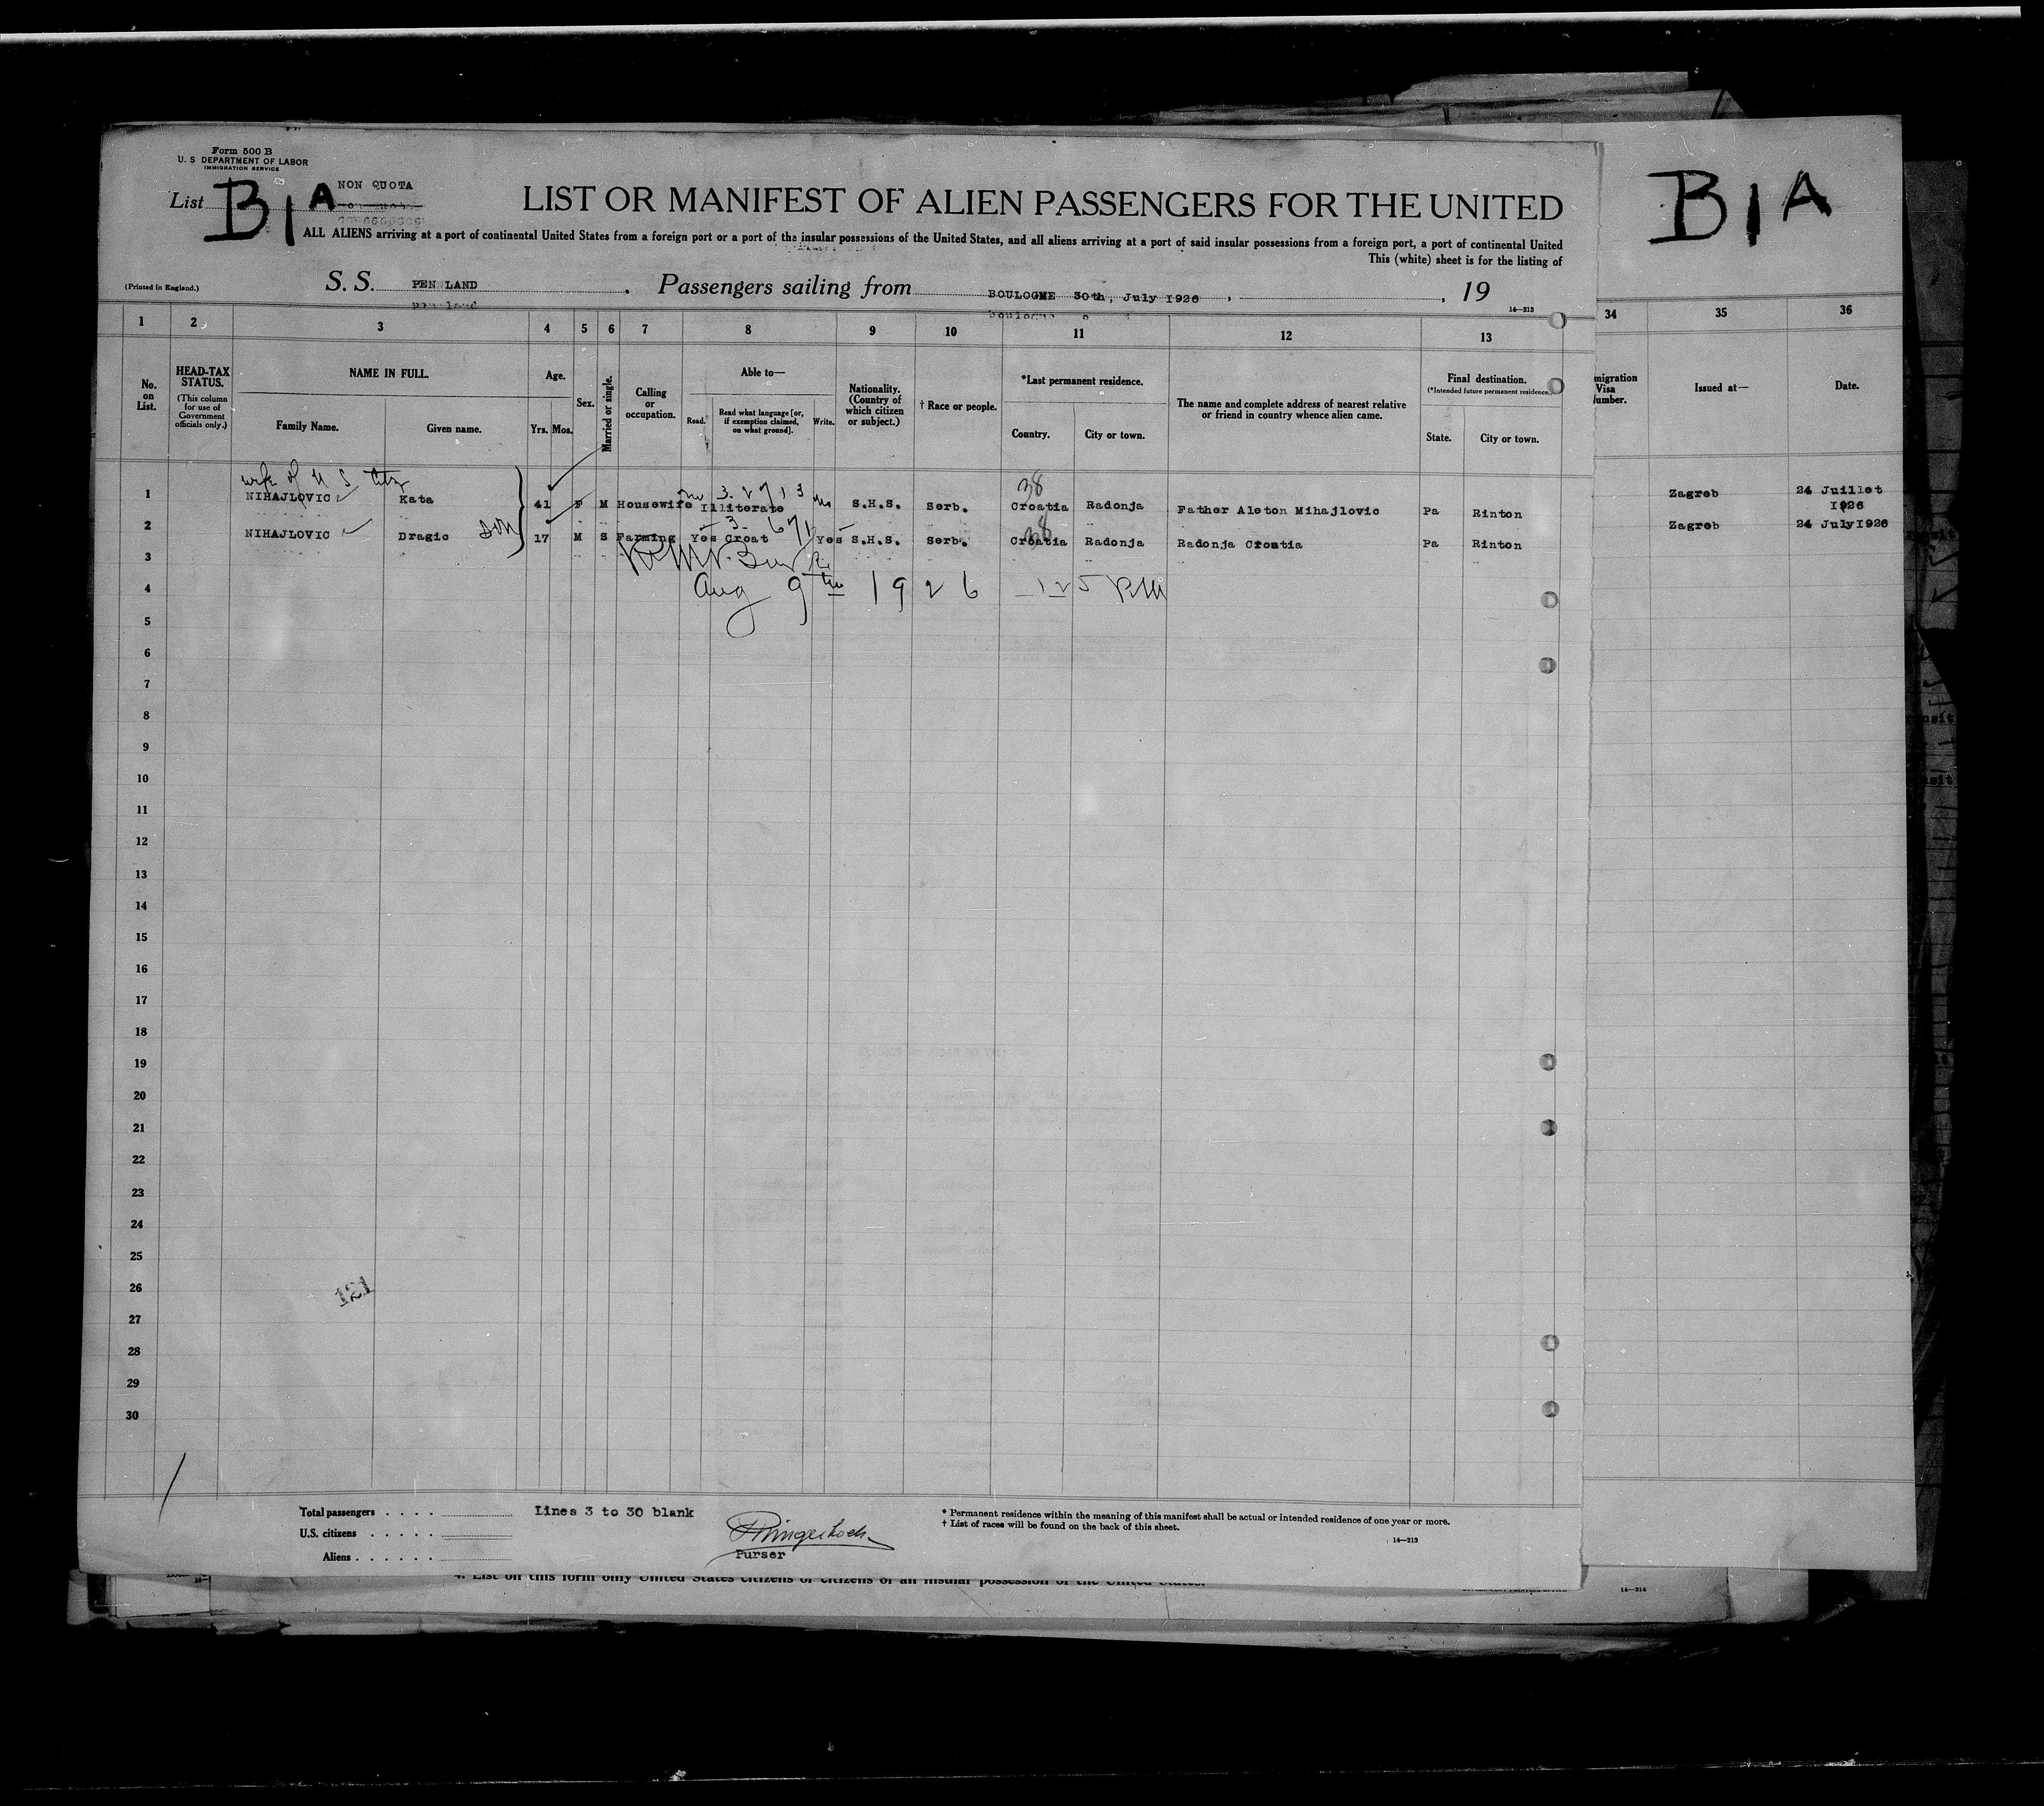 Form 500 B
U. S DEPARTMENT OF LABOR
IMMIGRATION SERVICE
List B1A NON QUOTA
LIST OR MANIFEST OF ALIEN PASSENGERS FOR THE UNITED
B1A
ALL ALIENS arriving at a port of continental United States from a foreign port or a port of the insular possessions of the United States, and all aliens arriving at a port of said insular possessions from a foreign port, a port of continental United
This (white) sheet is for the listing of
(Printed in England.)
S. S. PEN LAND . Passengers sailing from BOULOGNE 30th, July 1926 , , 19
14—213
1 2 3 4 5 6 7 8 9 10 11 12 13 34 35 36
No. on List.
HEAD-TAX STATUS.
(This column for use of Government officials only.)
NAME IN FULL.
Family Name. Given name.
Age.
Yrs. Mos.
Sex.
Married or single.
Calling or occupation.
Able to—
Read. Read what language [or, if exemption claimed, on what ground]. Write.
Nationality. (Country of which citizen or subject.)
† Race or people.
*Last permanent residence.
Country. City or town.
The name and complete address of nearest relative or friend in country whence alien came.
Final destination.
(*Intended future permanent residence.)
State. City or town.
migration Visa umber.
Issued at—
Date.
wife of U S Citz
1 NIHAJLOVIC Kata 41 F M Housewife no Illiterate no S.H.S. Serb. 38 Croatia Radonja Father Aleton Mihajlovic Pa Rinton Zagreb 24 Juillet 1926
2 NIHAJLOVIC Dragic son 17 M S Farming Yes Croat Yes S.H.S. Serb. 38 Croatia Radonja Radonja Croatia Pa Rinton Zagreb 24 July1926
3
4 Aug 9th 1926 125 PM
5
6
7
8
9
10
11
12
13
14
15
16
17
18
19
20
21
22
23
24
25
26
27
28
29
30
121
Total passengers . . . .
U.S. citizens . . . . .
Aliens . . . . . .
Lines 3 to 30 blank
Purser
* Permanent residence within the meaning of this manifest shall be actual or intended residence of one year or more.
† List of races will be found on the back of this sheet.
14—213
4. List on this form only United States citizens or citizens of an insular possession of the United States.
14—214